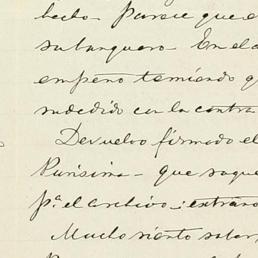 hecho. Parece que e
su banquero. En el a
empeño temiendo q
sudedido con la contra
Devuelvo firmado el
Purísima - que saque
pª el archivo, extraño
Mucho siento saber,